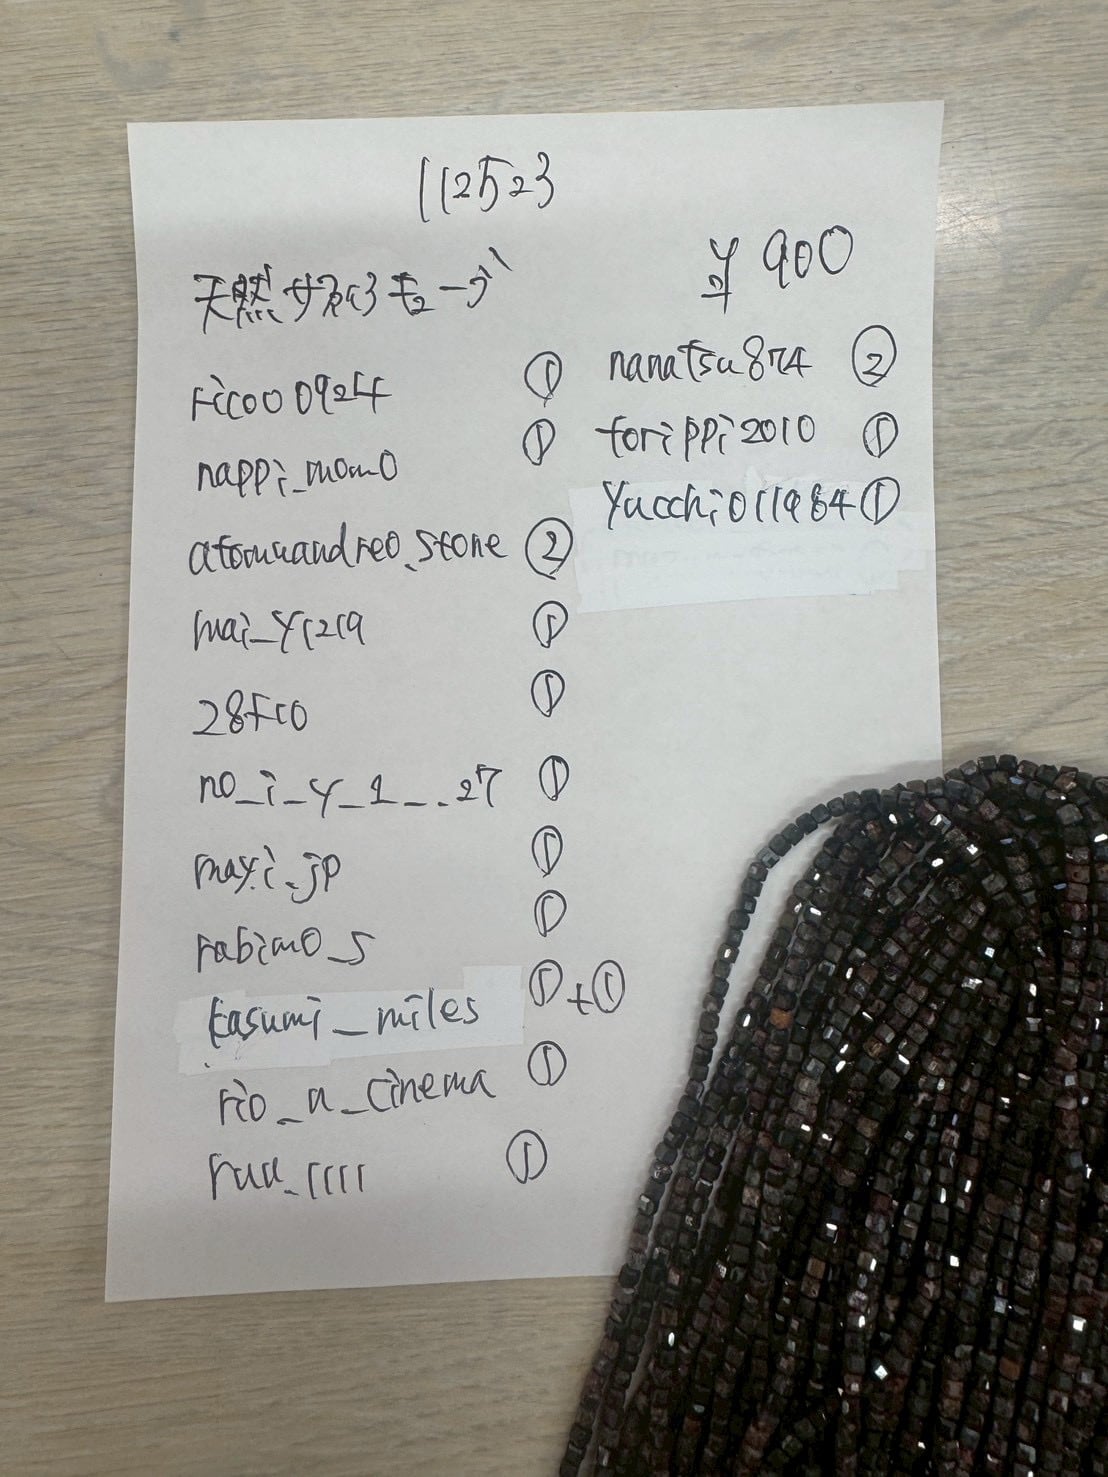 112523
天然サファイアキューブ
¥900
ricoo0924 ①
nappi_momo ①
atomuandreo_stone ②
mai_y1219 ①
28fco ①
no_i_y_1__.27 ①
mayi_jp ①
rabimo_s ①
kasumi_miles ①+①
rio_u_cinema ①
ruu_1111 ①
nanatsu874 ②
torippi2010 ①
yucchi011984 ①